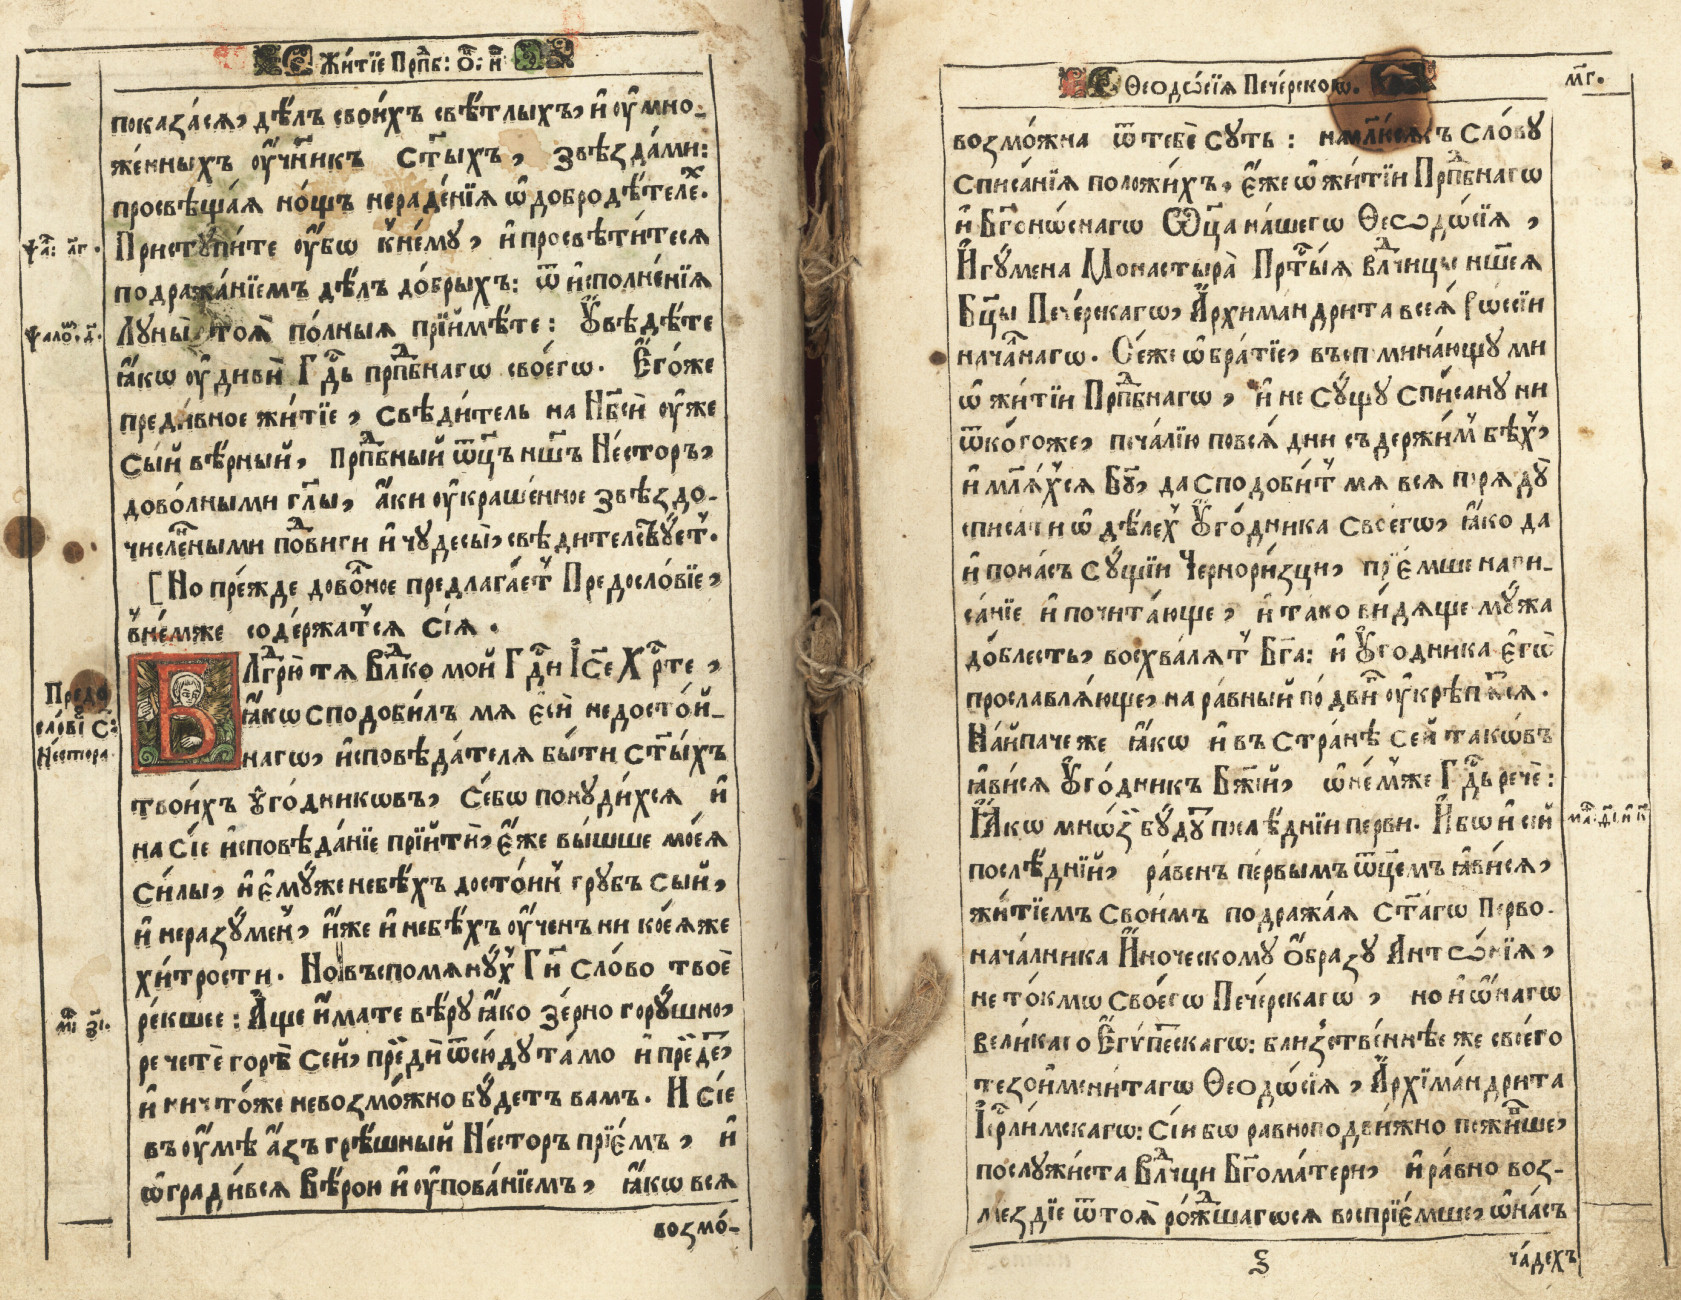 Жи́тїе Прпⷣб: Ѻ҃: н҃
показа́сѧ, дѣ́лъ свои́хъ свѣ́тлыхъ, и҆ оу҆мно-
же́нныхъ оу҆чн҃икъ ст҃ыхъ, звѣзда́ми:
просвѣща́ѧ но́щъ нераде́нїѧ ѡ҆ добродѣ́телеⷯ.
Приступи́те оу҆́бѡ к̾не́му, и҆ просвѣти́тесѧ
подража́нїемъ дѣ́лъ до́брыхъ: ѿ и҆сполне́нїѧ
Луны̀ тоѧ̀ по́лныѧ прїимѣ́те: Оу҆вѣ́дѣте
ꙗ҆́кѡ оу҆дивѝ Гдⷭ҇ь прпⷣбнагѡ своегѡ. Е҆го́же
преди́вное жи́тїе, свѣди́тель на Нб҃сѝ оу҆́же
сы́й вѣ́рный, Прпⷣбный ѿц҃ъ нш҃ъ Не́сторъ,
дово́лными гл҃ы, а҆́ки оу҆краше́нное звѣздо-
чи́сленными по́двиги и҆ чудесы̀, свѣдителствꙋ́етъ.
[Но пре́жде дово́лное предлага́етъ Предосло́вїе,
в̾не́мже соде́ржатсѧ сїѧ.
Предо
сло́вї С҃:
Не́стора
Блⷢ҇рю́ тѧ Влⷣко мой Гдⷭ҇и І҆се Хрⷭ҇те,
ꙗ҆́кѡ сподоби́лъ мѧ є҆сѝ недосто́й-
нагѡ, и҆сповѣ́дателѧ бы́ти ст҃ы́хъ
твои́хъ оу҆го́дникѡвъ, Се́бѡ пону́дихсѧ и҆
на сїе и҆сповѣ́данїе прїитѝ, є҆́же вы́шше моеѧ̀
си́лы, и҆ є҆му́же небѣ́хъ досто́инъ грубъ сый,
и҆ неразꙋ́менъ, и҆́же и҆ небѣ́хъ оу҆́ченъ ни ко́еѧже
хи́трости. Но въспомѧнꙋ́хъ Гн҃и сло́во твоѐ
ре́кшее: А҆́ще и҆́мате вѣ́ру ꙗ҆́ко зе́рно горꙋ́шно,
рече́те горѣ̀ сей, прейдѝ ѿсю́ду та́мо и҆ пре́йде,
и҆ ничто́же невозмо́жно бꙋ́детъ вамъ. И сїе
въ оу҆мѣ̀ а҆́зъ грѣ́шный Не́сторъ прїе́мъ, и҆
ѡ҆гради́всѧ Вѣ́рою и҆ оу҆пова́нїемъ, ꙗ҆́кѡ всѧ
возмо́-
Ѳеодѡ́сїѧ Пече́рскогѡ.
м҃г.
возмо́жна ѿ тебѐ суть: сло́ву
списа́нїѧ положи́хъ, є҆́же ѡ҆ жи́тїи Прпⷣбнагѡ
и҆ Бг҃оно́снагѡ Ѿц҃а на́шегѡ Ѳеодѡ́сїѧ,
И҆гу́мена Монастырѧ̀ Прⷭ҇ты́ѧ влⷣчицы нш҃еѧ
Бцⷣы Пече́рскагѡ, А҆рхимандри́та всеѧ̀ Рѡ́ссїи
нача́лнагѡ. Се́же ѡ҆ бра́тїе, въспомина́ющу ми
ѡ҆ жи́тїи Прпⷣбнаго, и҆ не сꙋ́щу спи́сану ни
ѿ ко́гоже, печа́лїю по всѧ́ дни съдержи́мъ бѣ́хъ,
и҆ мл҃ѧ́хсѧ Бг҃у, да сподоби́тъ мѧ всѧ порѧ́ду
списа́ти ѡ҆ дѣ́лехъ Оу҆го́дника своегѡ, ꙗ҆́ко да
и҆ по на́съ сꙋ́щїи Чернори́зци, прїе́мше напи-
са́нїе и҆ почита́юще, и҆ тако ви́дѧще мꙋ́жа
до́блесть, восхва́лѧтъ Бг҃а: и҆ Оу҆го́дника є҆гѡ̀
прославлѧ́юще, на ра́вный по́двигъ оу҆крѣпѧ́тсѧ.
На́йпаче же ꙗ҆́кѡ и҆ въ стра́нѣ се́й такѡ́въ
ꙗ҆ви́сѧ Оу҆го́дникъ Бж҃їй, ѡ҆ не́мже Гдⷭ҇ь речѐ:
Ꙗ҆́кѡ мно́зи бꙋ́дутъ послѣ́днїи первїи. И҆бо и҆ сїй
послѣ́днїй, ра́венъ пе́рвымъ ѿц҃емъ ꙗ҆ви́сѧ,
жи́тїемъ свои́мъ подража́ѧ ст҃а́гѡ Перво-
нача́лника И҆́ноческому Ѻ҆́бразу Антѡ́нїѧ,
не то́кмѡ своегѡ̀ Пече́рскагѡ, но и҆ ѡ҆́нагѡ
вели́каго Е҆гѵ́петскагѡ: бли́зственнѣе же своегѡ
тезоиме́нитагѡ Ѳеодѡ́сїѧ, А҆рхїманди́рита
І҆ерⷭ҇ли́мскагѡ: Сїи бѡ равнопо́движно пожи́вше,
послужи́ста Влⷣчци Бг҃ома́тери, и҆ ра́вно воз-
ме́здїе ѿ тоѧ̀ ро́ждшагѡсѧ воспрїе́мше, ѡ҆ на́съ
ѯ
ча́дехъ